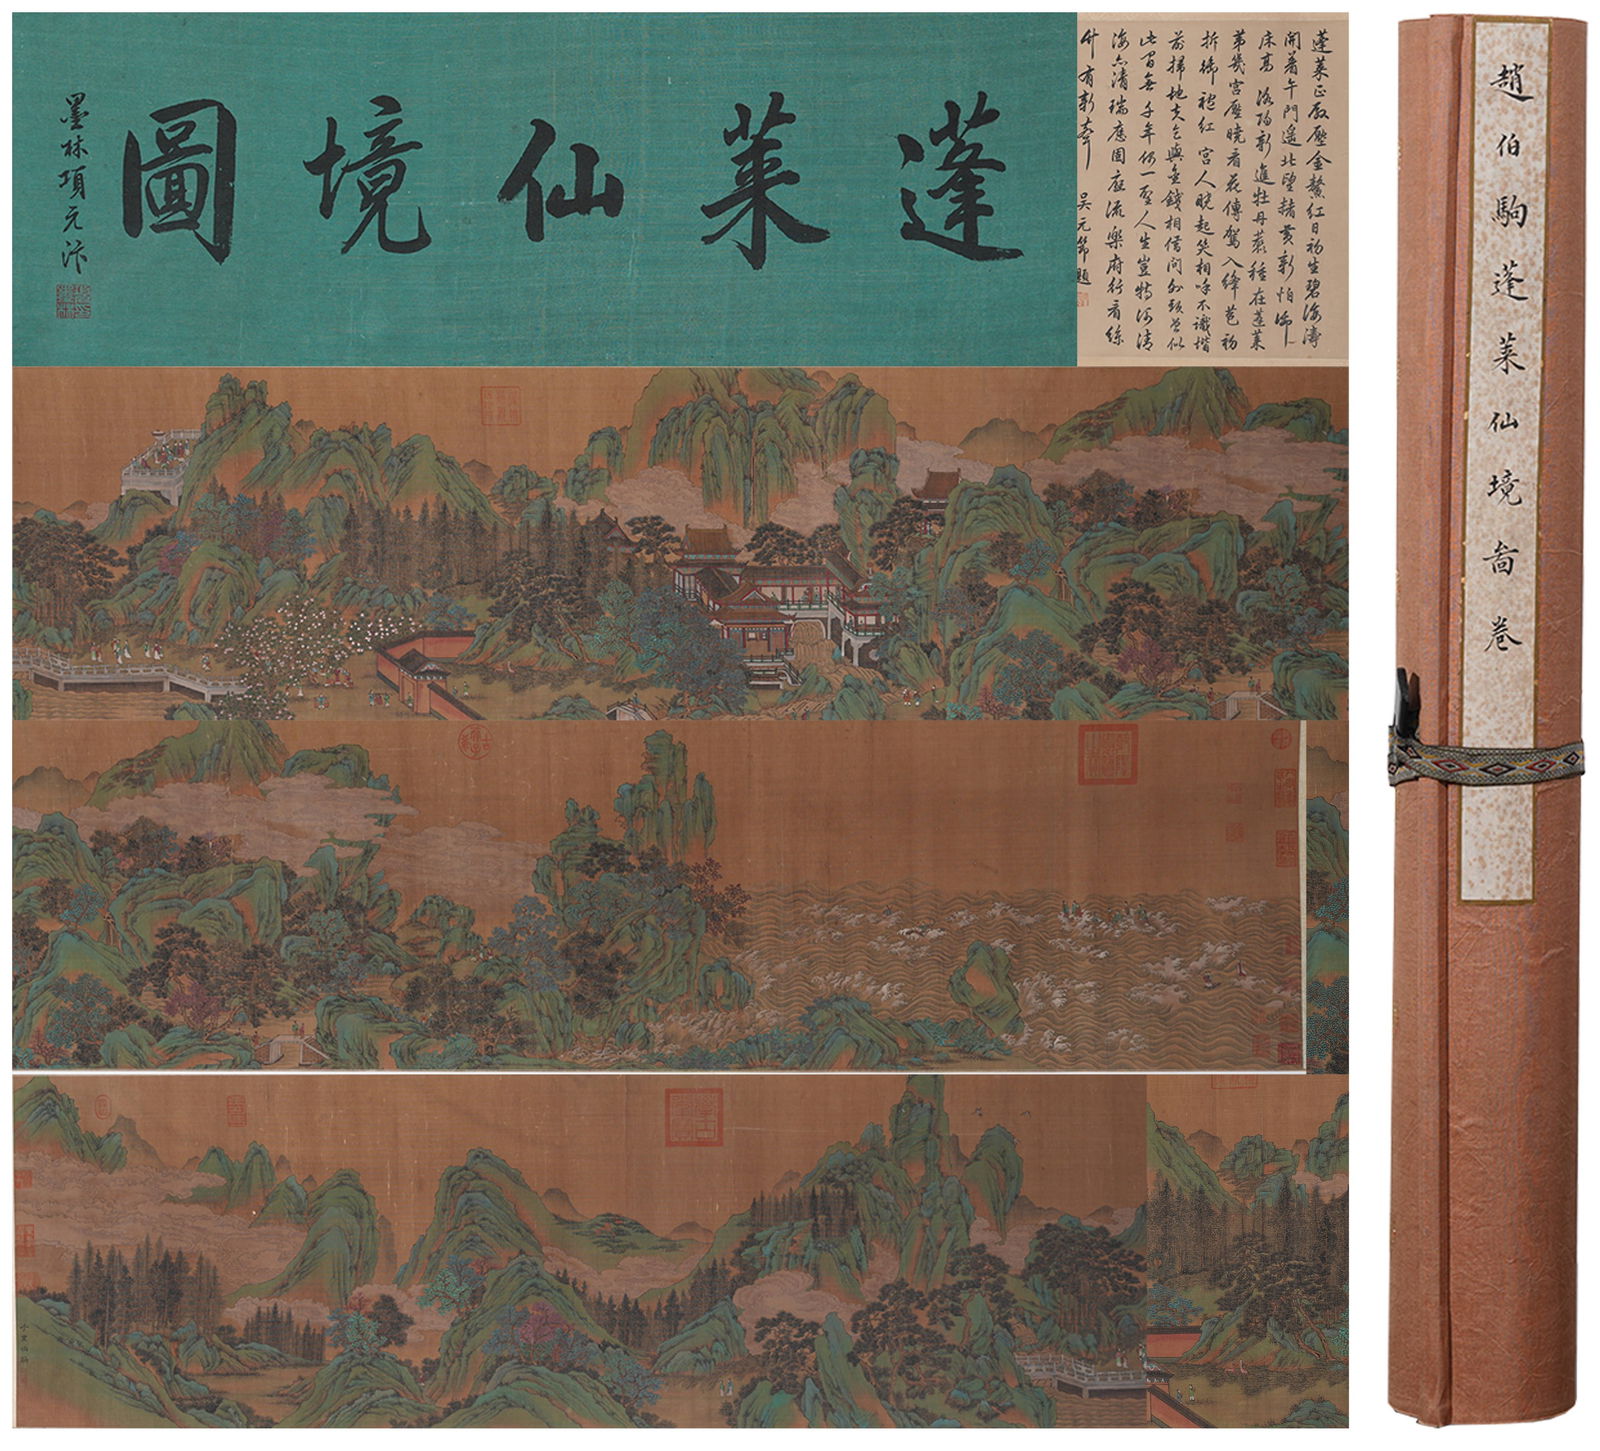 蓬萊仙境圖
墨林項元汴
蓬萊正殿壓金鰲紅日初生碧海濤
開着午門遙北望赭黃新怕御
床高 洛陽新進牡丹叢種在蓬萊
第幾宮壓曉看花傳駕入絳苞初
拆御袍紅 宮人曉起笑相呼不識堦
前掃地夫乞與金錢相借問外頭曾似
此間無 千年仍一聖人生豈特河清
海亦清瑞應圖應流樂府行看絲
竹有新聲 吳元節題
趙伯駒蓬萊仙境啚卷